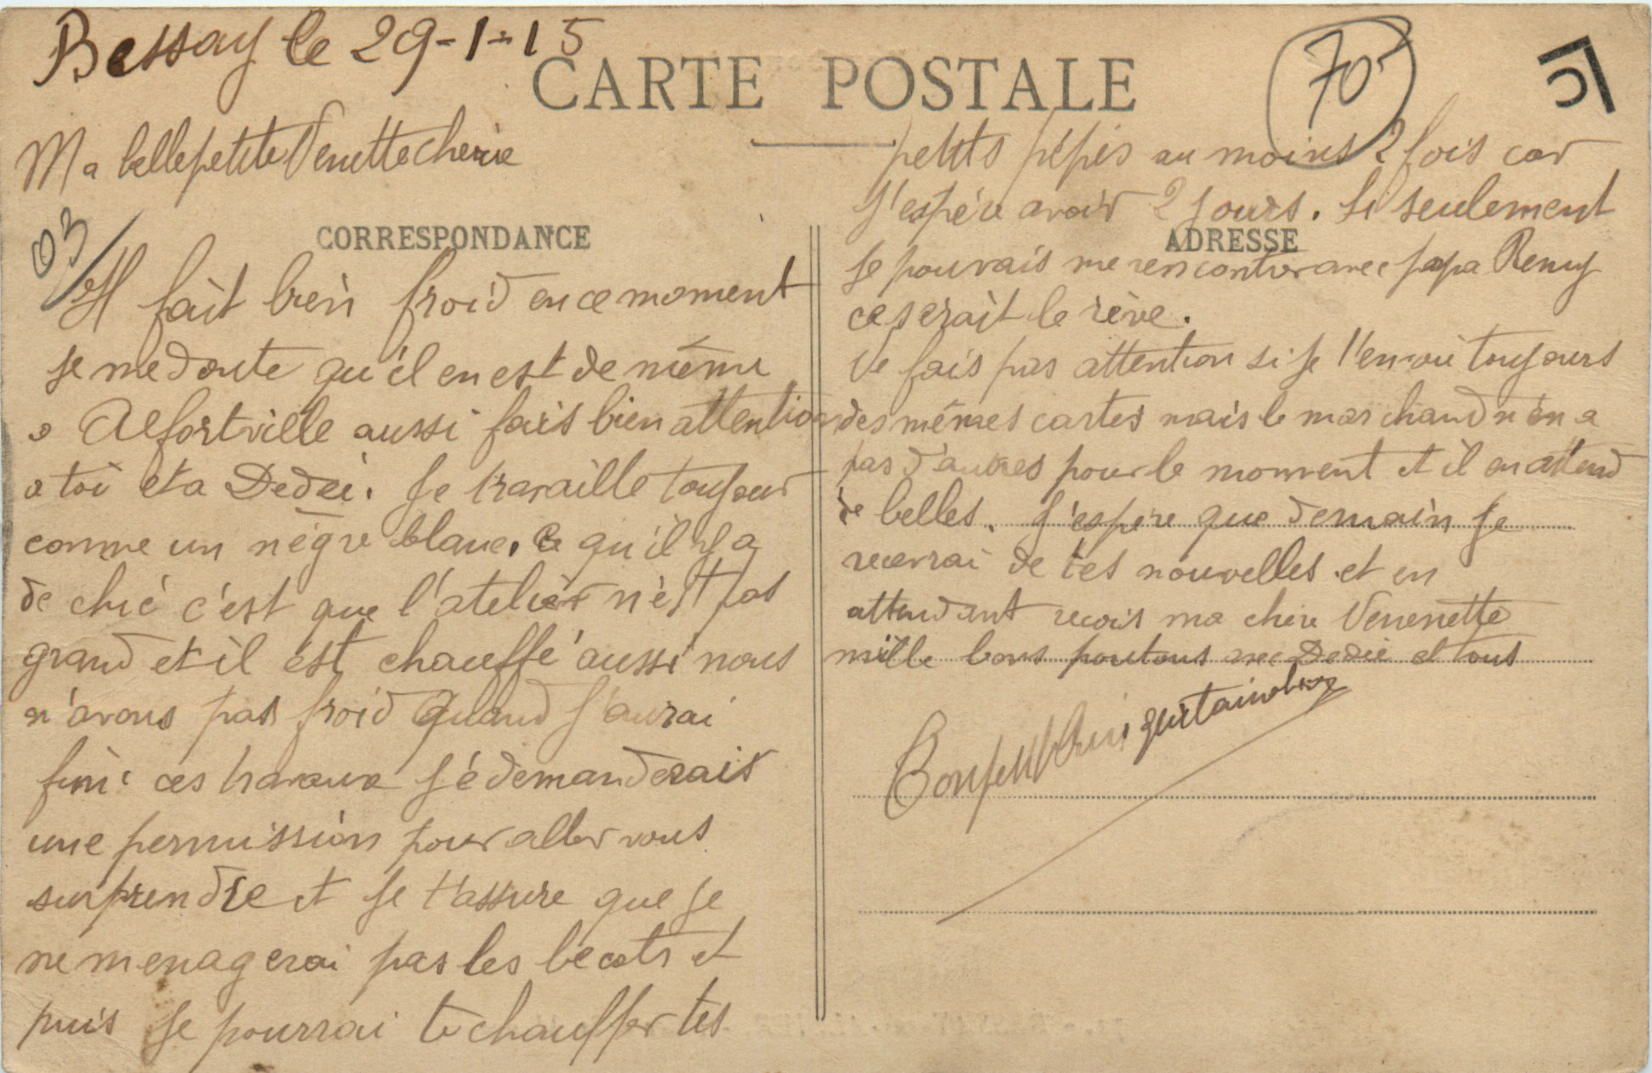 Bessay le 29-1-15
CARTE POSTALE
70
Ma belle petite Venette cherie
CORRESPONDANCE
03
Il fait bien froid en ce moment
je me doute qu'il en est de même
a Alfortville aussi fais bien attention
a toi et a Dedei. Je travaille toujour
comme un nègre blanc. Ce qu'il y a
de chic c'est que l'atelier n'est pas
grand et il est chauffé aussi nous
n'avons pas froid Quand j'aurai
fini ces travaux je demanderais
une permission pour aller vous
surprendre et je t'assure que je
ne menagerai pas les becots et
puis je pourrai te chauffer tes
petits au moins 2 fois car
j'espère avoir 2 jours. Si seulement
ADRESSE
je pouvais me rencontrer avec papa Remy
ce serait le rève.
Ne fais pas attention si je t'envoi toujours
des mêmes cartes mais le marchand n'en a
pas d'autres pour le moment et il en attend
de belles. J'espère que demain je
recevrai de tes nouvelles et en
attendant recois ma chere Venenette
mille bons poutous avec Dedie et tous